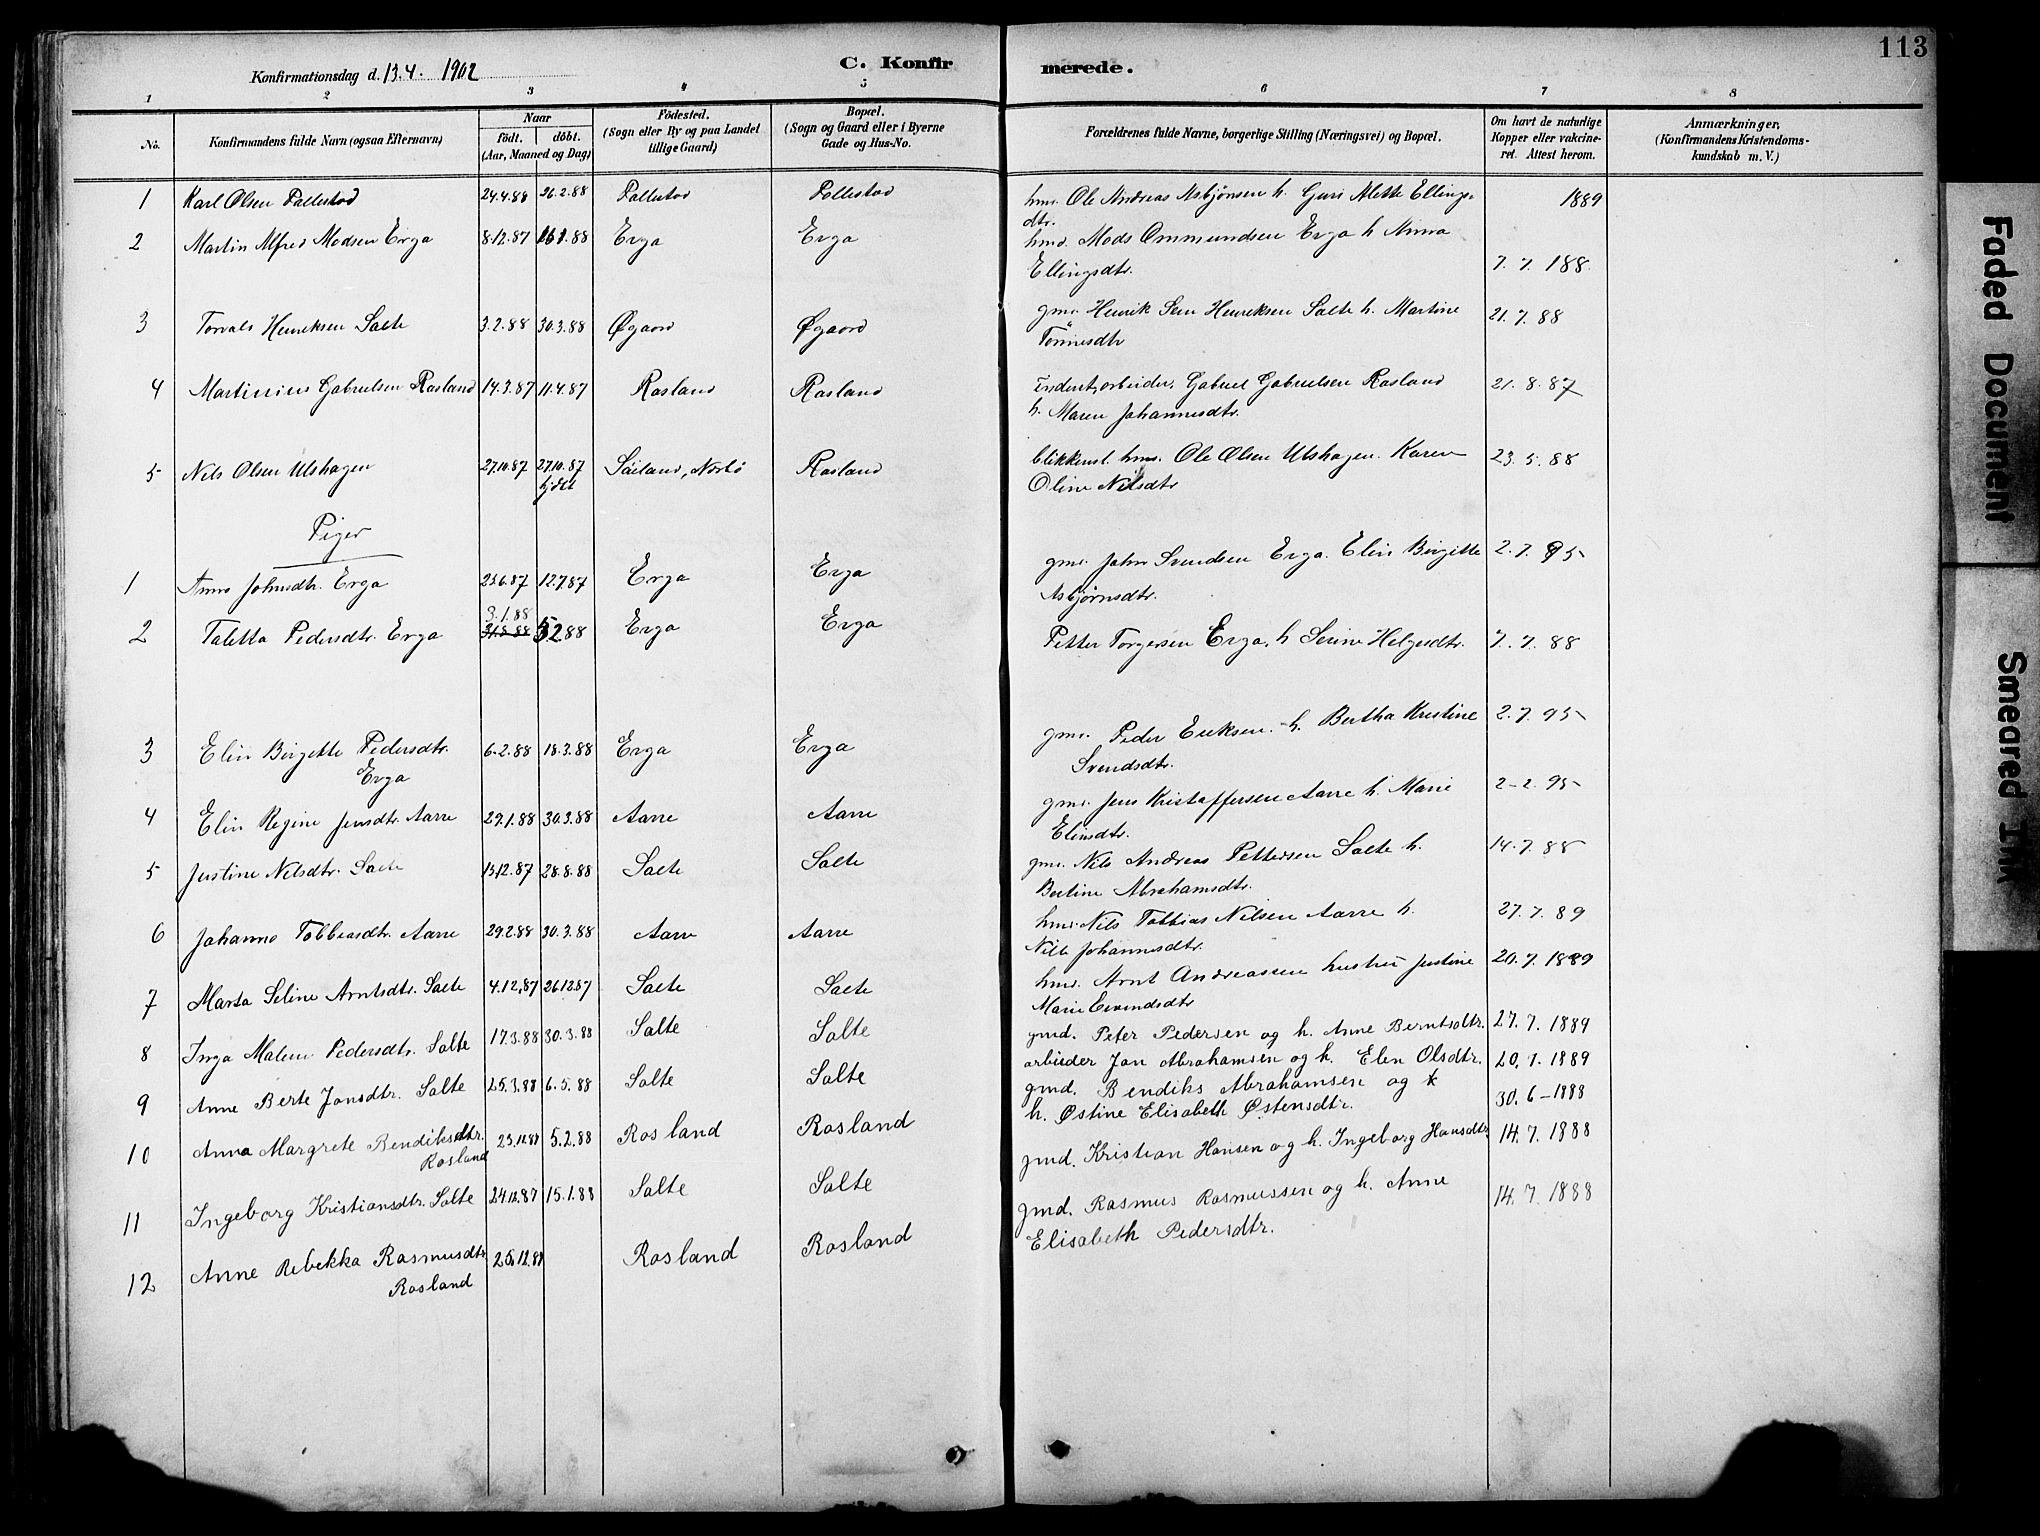 113
Konfirmationsdag d. 13.4. 1902
C. Konfir merede.
1 2 3 4 5 6 7 8
No.
Konfirmandens fulde Navn (ogsaa Efternavn)
Naar
født. døbt.
(Aar, Maaned og Dag)
Fødested.
(Sogn eller By og paa Landet
tillige Gaard)
Bopæl.
(Sogn og Gaard eller i Byerne
Gade og Hus-No.
Forældrenes fulde Navne, borgerlige Stilling (Næringsvei) og Bopæl.
Om havt de naturlige
Kopper eller vakcine-
ret. Attest herom.
Anmærkninger,
(Konfirmandens Kristendoms-
kundskab m. V.)
1 Karl Olsen Pallestad 24.4.88 26.2.88 Pollestad Pollestad hmd. Ole Andreas Asbjönsen h. Guri Mette Ellings-
dtr. 1889
2 Martin Alfred Madsen Erga 8.12.87 Erga Erga hmd. Mads Ommundsen Erga h Anna
Ellingsdtr. 7.7.188
3 Torvald Henriksen Salte 3.2.88 30.3.88 Øgaard Øgaard gmd. Henrik Sem Henriksen Salte h. Martine
Tönnesdtr 21.7.88
4 Martinius Gabrielsen Rosland 14.3.87 11.4.87 Rosland Rosland arbeider, Gabriel Gabrielsen Rosland
h. Maren Johannesdtr. 21.8.87
5 Nils Olsen Ulshagen 27.10.87 27.10.87
hjdbt Söiland, Norbö Rosland blikkensl. hmd. Ole Olsen Ulshagen. Karen
Oline Nilsdtr 23.5.88
Piger
1 Anna Johnsdtr. Erga 23.6.87 12.7.87 Erga Erga gmd. John Svendsen Erga. Elin Birgitte
Asbjørnsdtr. 2.7.95
2 Taletta Pedersdtr. Erga 3.1.88 5.2.88 Erga Erga Petter Torgersen Erga, h Serine Helgesdtr. 7.7.88
3 Elin Birgitte Pedersdtr.
Erga 6.2.88 18.3.88 Erga Erga gmd. Peder Eriksen. h. Bertha Kristine
Svendsdtr. 2.7.95
4 Elin Regine Jensdtr. Aarre 29.1.88 30.3.88 Aarre Aarre gmd. Jens Kristoffersen Aarre h. Marie
Eliasdtr. 2-2.95
5 Justine Nilsdtr. Salte 13.12.87 28.8.88 Salte Salte gmd. Nils Andreas Pettersen Salte h.
Bertine Abrahamsdtr. 14.7.88
6 Johanne Tobbiasdtr. Aarre 29.2.88 30.3.88 Aarre Aarre hmd. Nils Tobbias Nilsen Aarre h.
Johannesdtr. 27.7.89
7 Marta Seline Arntsdtr. Salte 4.12.87 26.12.87 Salte Salte hmd. Arnt Andreassen hustru Justine
Marie Eivindsdtr 20.7.1889
8 Inga Malene Pedersdtr. Salte 17.3.88 30.3.88 Salte Salte gmd. Peter Pedersen og h. Anne Berntsdtr. 27.7.1889
9 Anne Berte Jansdtr. Salte 25.3.88 6.5.88 Salte Salte arbeider Jan Abrahamsen og h. Elen Olsdtr. 20.7.1889
10 Anna Margrete Bendiksdtr.
Rosland 23.12.87 5.2.88 Rosland Rosland gmd. Bendiks Abrahamsen og
h. Østine Elisabeth Østensdtr. 30.6-1888
11 Ingeborg Kristiansdtr. Salte 24.12.87 15.1.88 Salte Salte gmd. Kristian Hansen og h. Ingeborg Hansdtr 14.7.1888
12 Anne Rebekka Rasmusdtr.
Rosland 25.12.87 Rosland Rosland gmd. Rasmus Rasmussen og h. Anne
Elisabeth Pedersdtr. 14.7.1888
Faded Document
Smeared Ink